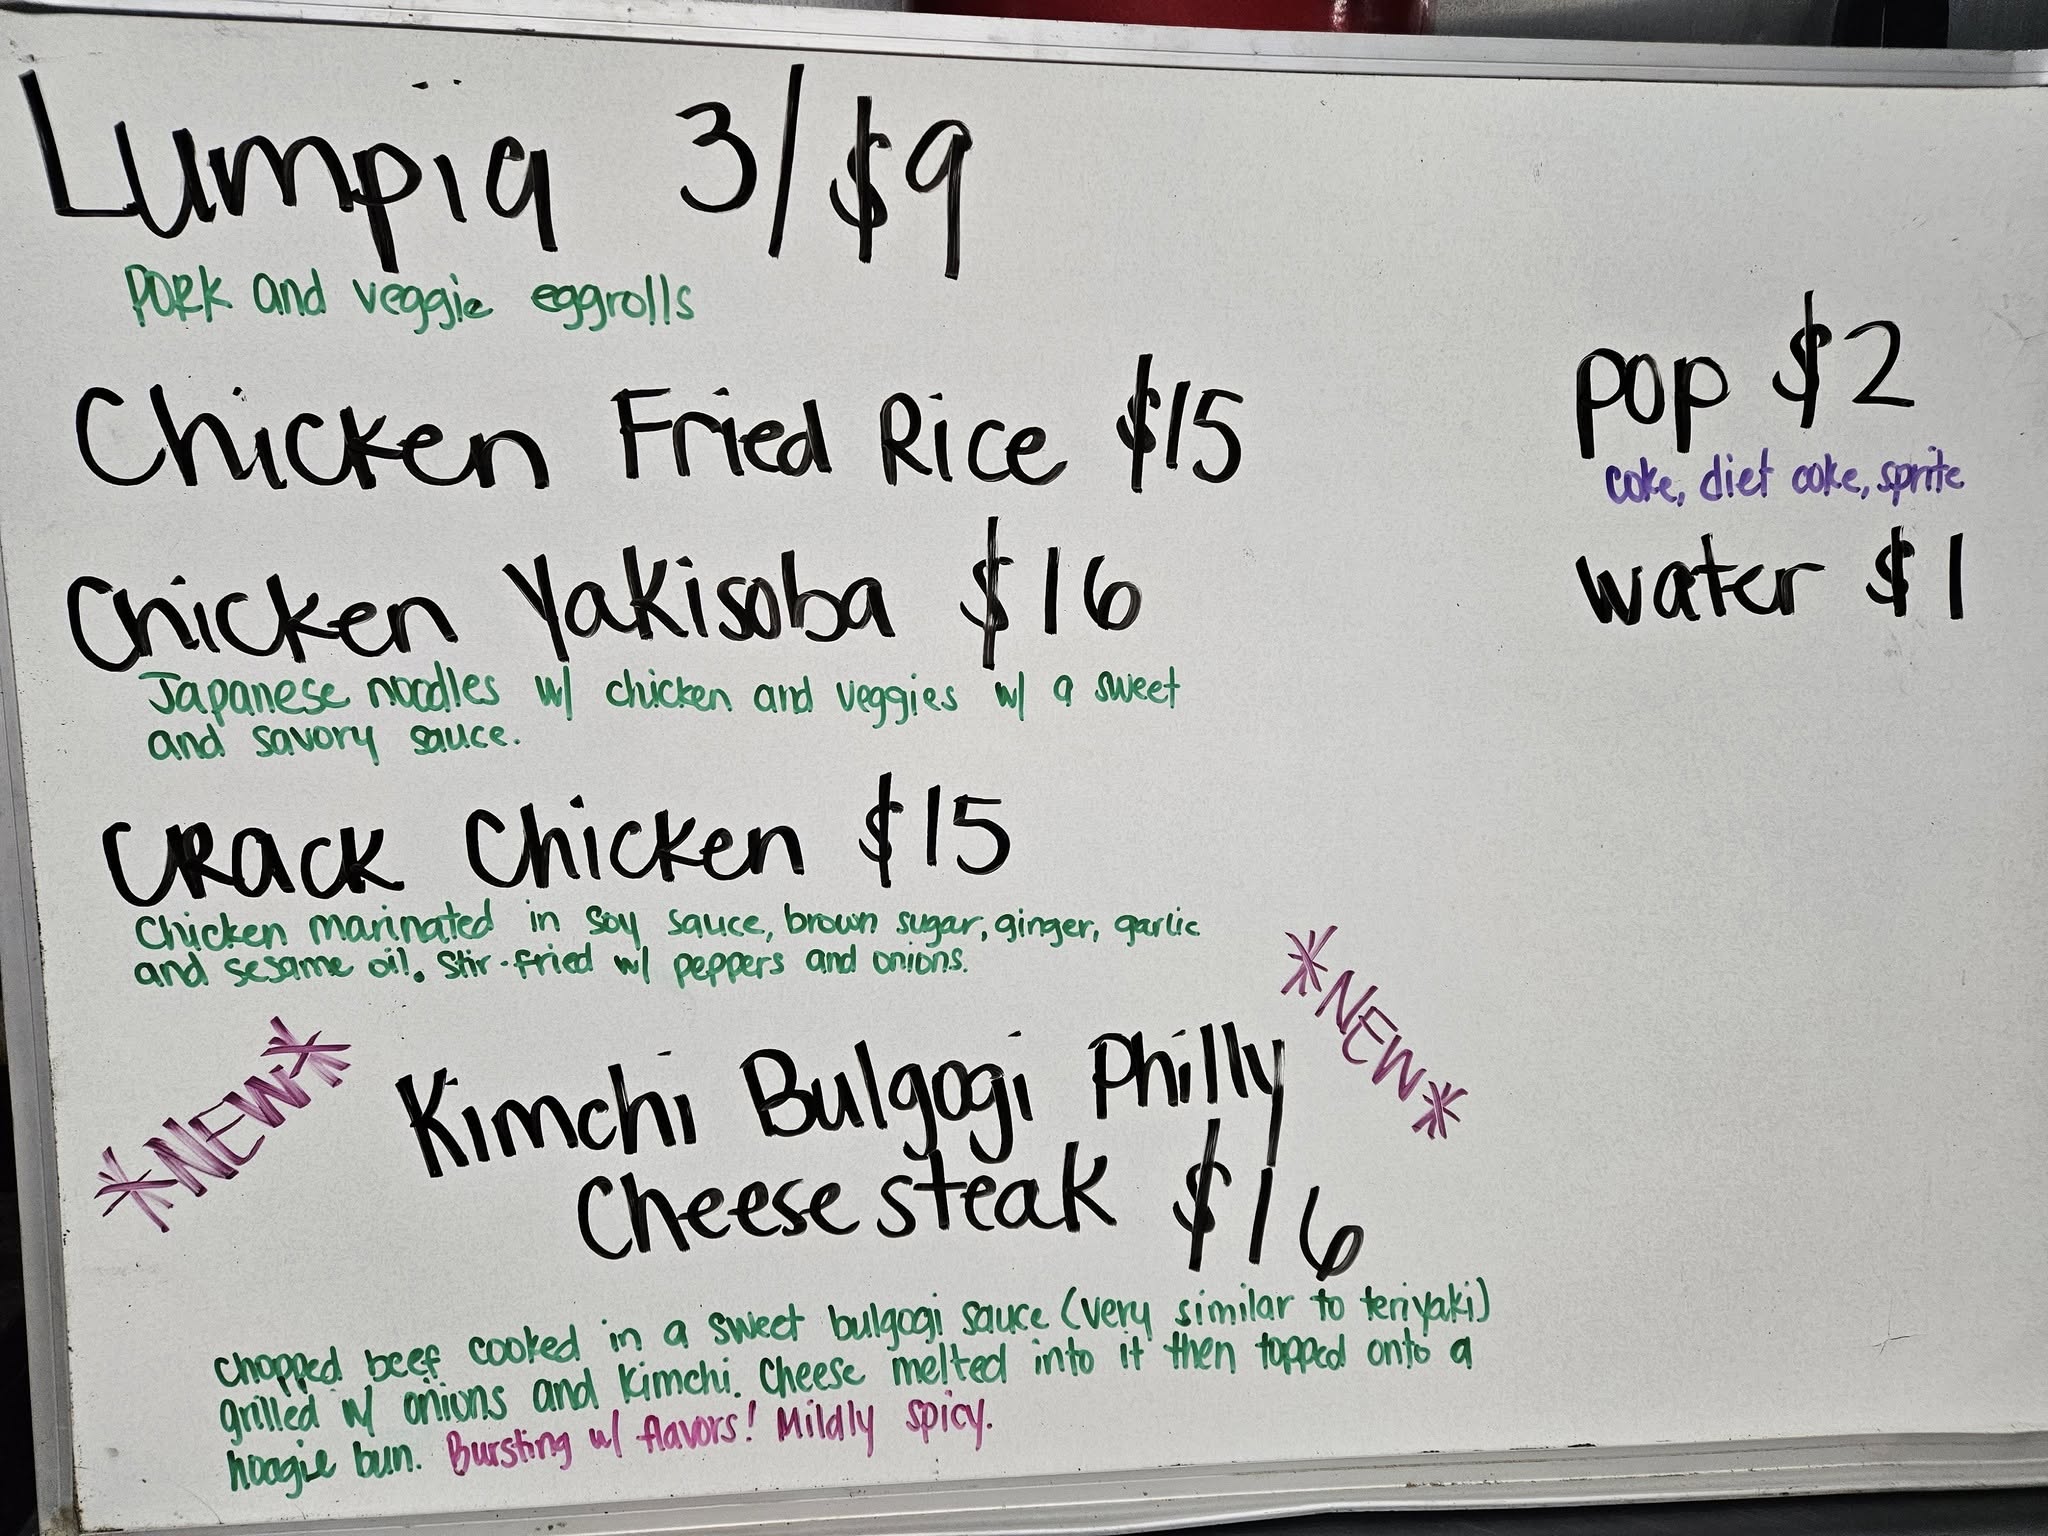 Lumpia 3/$9
Pork and veggie eggrolls
Chicken Fried Rice $15
Chicken Yakisoba $16
Japanese noodles w/ chicken and veggies w/ a sweet
and savory sauce.
Crack Chicken $15
Chicken marinated in soy sauce, brown sugar, ginger, garlic
and sesame oil. Stir-fried w/ peppers and onions.
*NEW*
Kimchi Bulgogi Philly
Cheesesteak $16
*NEW*
Chopped beef cooked in a sweet bulgogi sauce (very similar to teriyaki)
grilled w/ onions and kimchi. Cheese melted into it then topped onto a
hoagie bun. Bursting w/ flavors! Mildly spicy.
pop $2
coke, diet coke, sprite
water $1